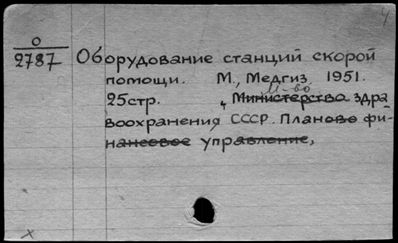 О
2787
Оборудование станций скорой
помощи. М., Медгиз, 1951.
М-во
25стр. , Министерство здра
воохранения СССР. Планово фи-
нансовое управление,